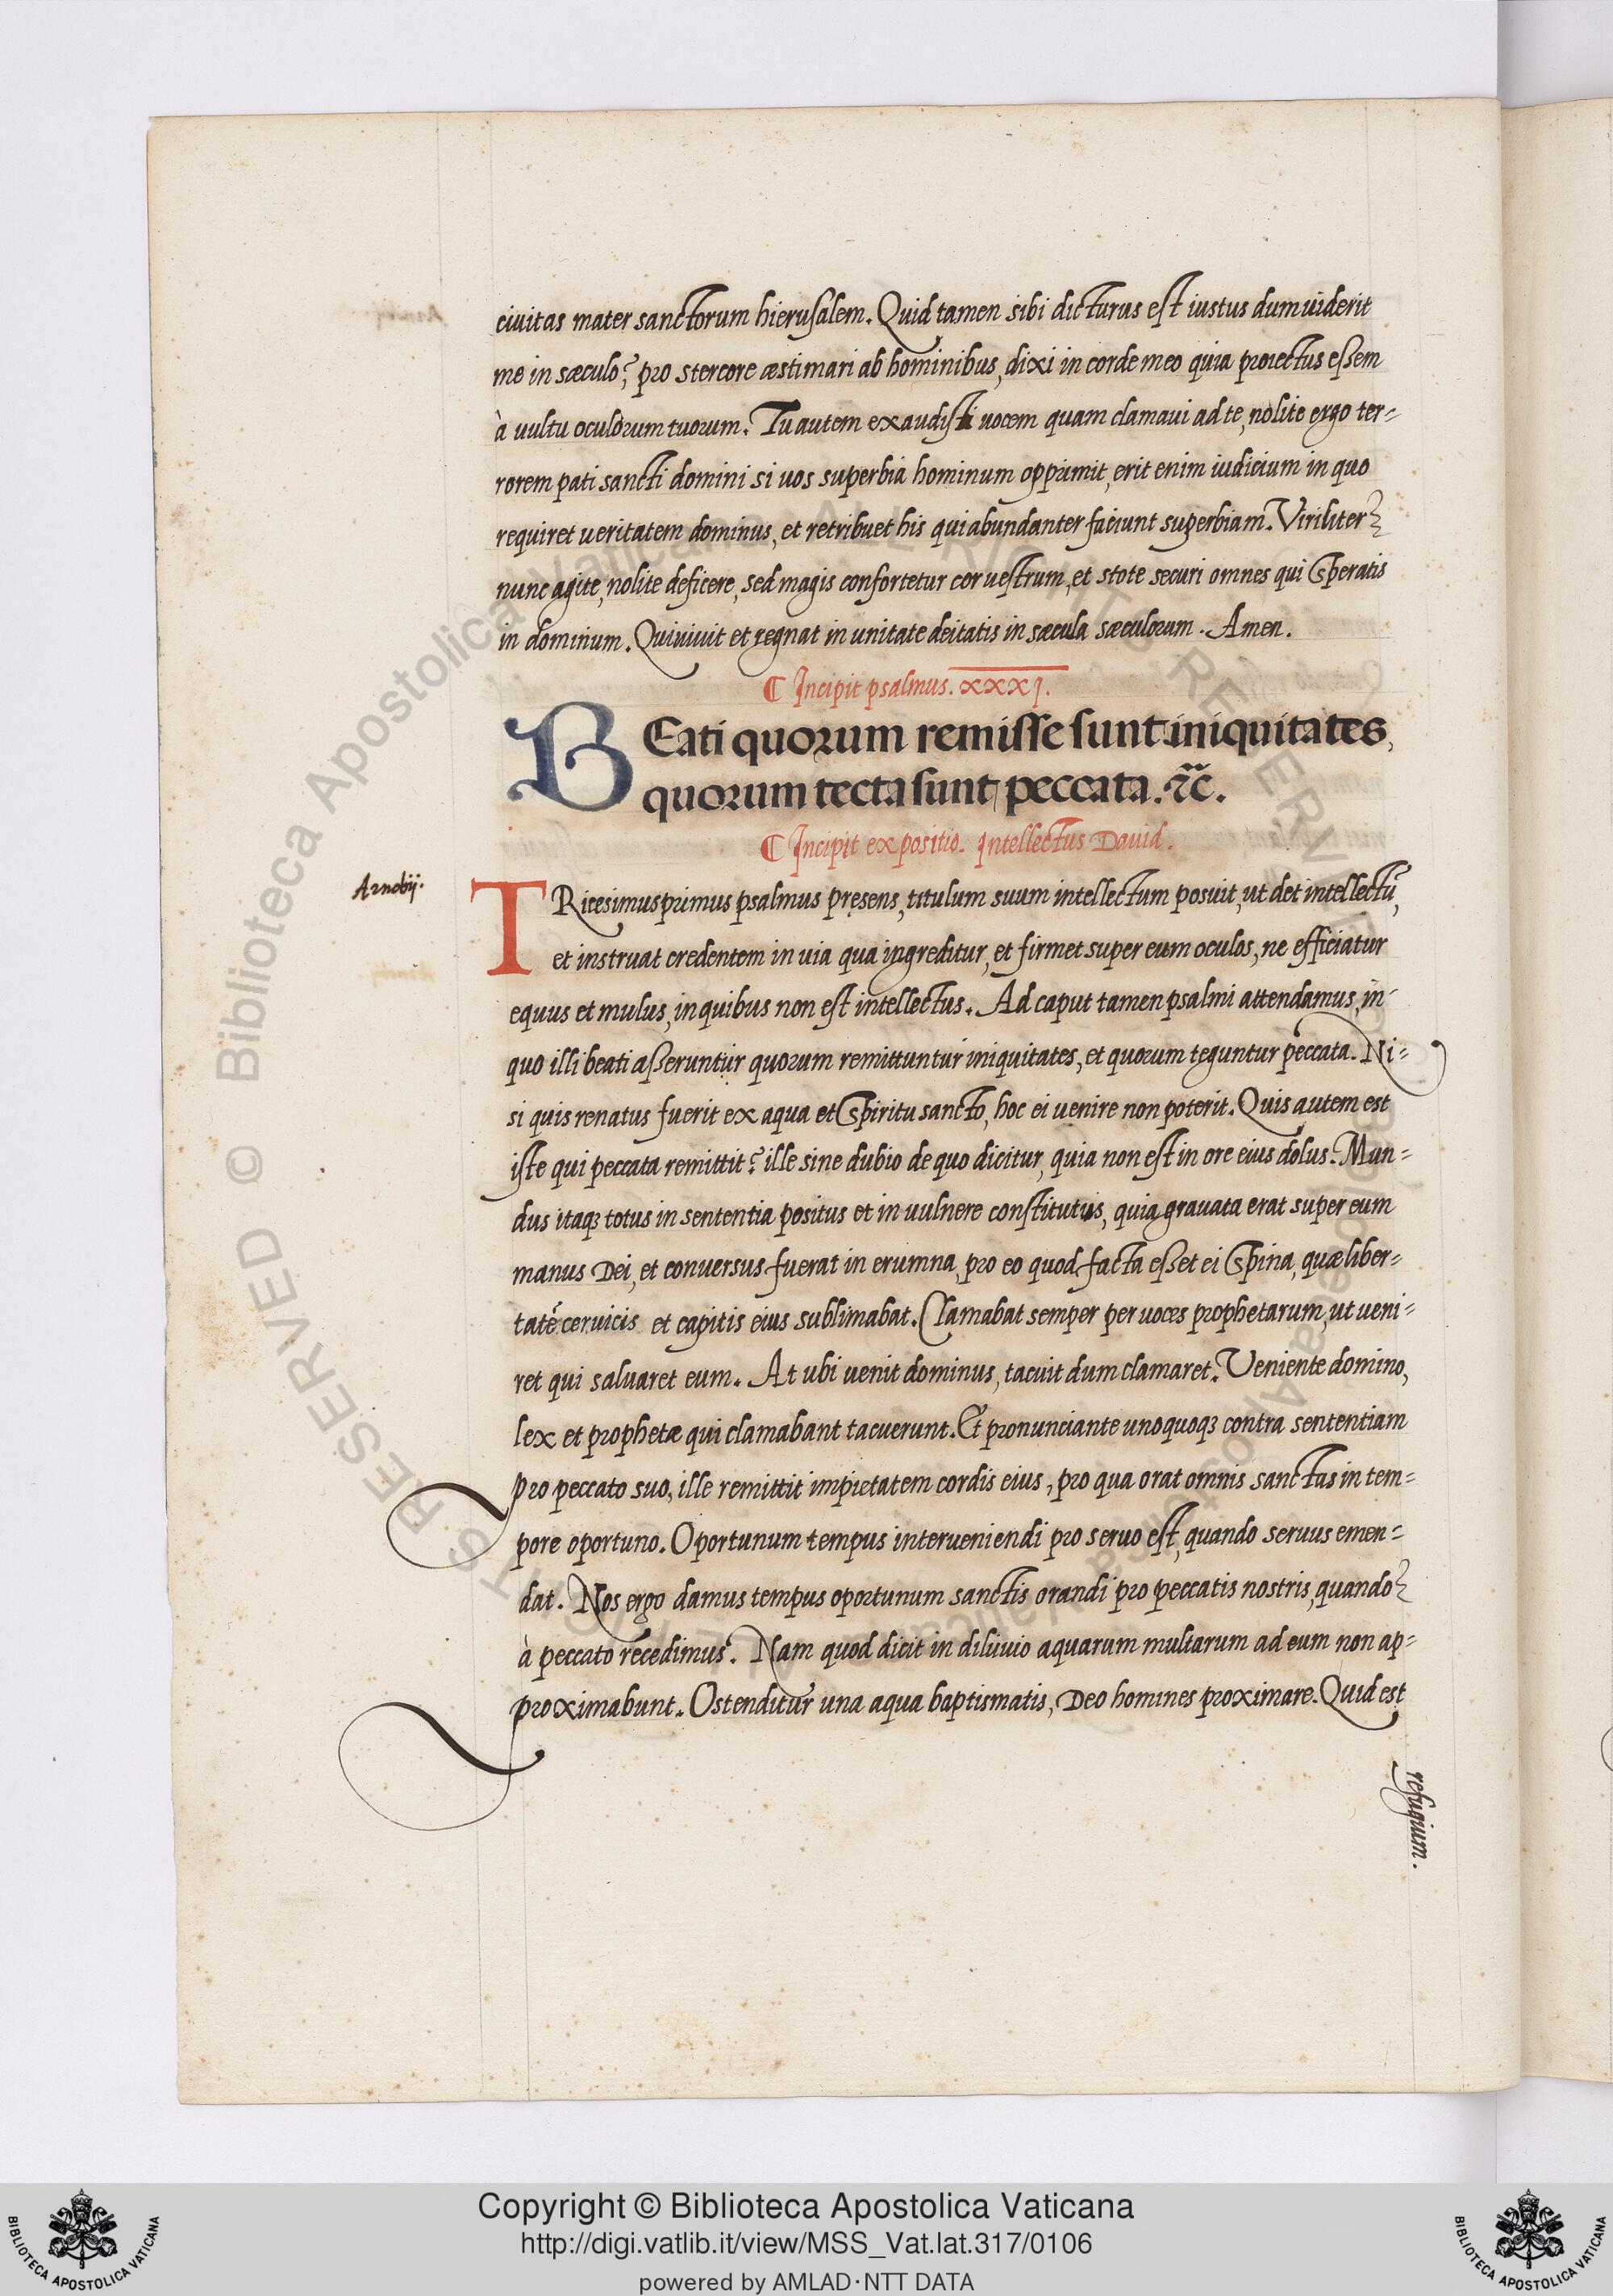 ciuitas mater sanctorum hierusalem. Quid tamen sibi dicturus est iustus dum uiderit
me in sæculo? pro stercore æstimari ab hominibus, dixi in corde meo quia proiectus essem
à uultu oculorum tuorum. Tu autem exaudisti uocem quam clamaui ad te, nolite ergo ter-
rorem pati sancti domini si uos superbia hominum opprimit, erit enim iudicium in quo
requiret ueritatem dominus, et retribuet his qui abundanter faciunt superbiam. Viriliter
nunc agite, nolite deficere, sed magis confortetur cor uestrum, et stote securi omnes qui speratis
in dominum. Qui uiuit et regnat in unitate deitatis in sæcula sæculorum. Amen.
¶ Incipit psalmus. xxxj.
BEati quorum remisse sunt iniquitates,
quorum tecta sunt peccata. ⁊c̃.
¶ Incipit expositio. Intellectus Dauid.
Arnobij.
TRicesimusprimus psalmus pręsens, titulum suum intellectum posuit, ut det intellectũ,
et instruat credentem in uia qua ingreditur, et firmet super eum oculos, ne efficiatur
equus et mulus, in quibus non est intellectus. Ad caput tamen psalmi attendamus, in
quo illi beati asseruntur quorum remittuntur iniquitates, et quorum teguntur peccata. Ni-
si quis renatus fuerit ex aqua et spiritu sancto, hoc ei uenire non poterit. Quis autem est
iste qui peccata remittit? ille sine dubio de quo dicitur, quia non est in ore eius dolus. Mun-
dus itaqꝫ totus in sententia positus et in uulnere constitutus, quia grauata erat super eum
manus Dei, et conuersus fuerat in erumna, pro eo quod facta esset ei spina, quæ liber-
tatẽ ceruicis et capitis eius sublimabat. Clamabat semper per uoces prophetarum, ut ueni-
ret qui saluaret eum. At ubi uenit dominus, tacuit dum clamaret. Veniente domino,
lex et prophetæ qui clamabant tacuerunt. Et pronunciante unoquoqꝫ contra sententiam
pro peccato suo, ille remittit impietatem cordis eius, pro qua orat omnis sanctus in tem-
pore oportuno. Oportunum tempus interueniendi pro seruo est, quando seruus emen-
dat. Nos ergo damus tempus oportunum sanctis orandi pro peccatis nostris, quando
à peccato recedimus. Nam quod dicit in diluuio aquarum multarum ad eum non ap-
proximabunt. Ostenditur una aqua baptismatis, Deo homines proximare. Quid est
refugium.
Copyright © Biblioteca Apostolica Vaticana
http://digi.vatlib.it/view/MSS_Vat.lat.317/0106
powered by AMLAD·NTT DATA
BIBLIOTECA APOSTOLICA VATICANA
BIBLIOTECA APOSTOLICA VATICANA